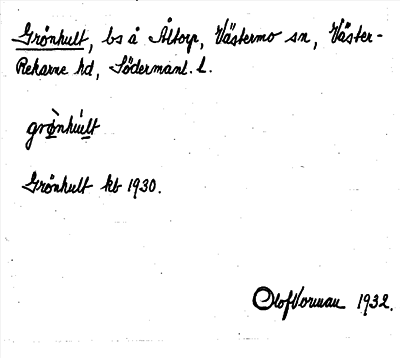 Grönhult, bs å Åltorp, Västermo sn, Väster-
Rekarne hd, Södermanl. l.
grö̀nhúlt
Grönhult kb 1930.
Olof Vorman 1932.